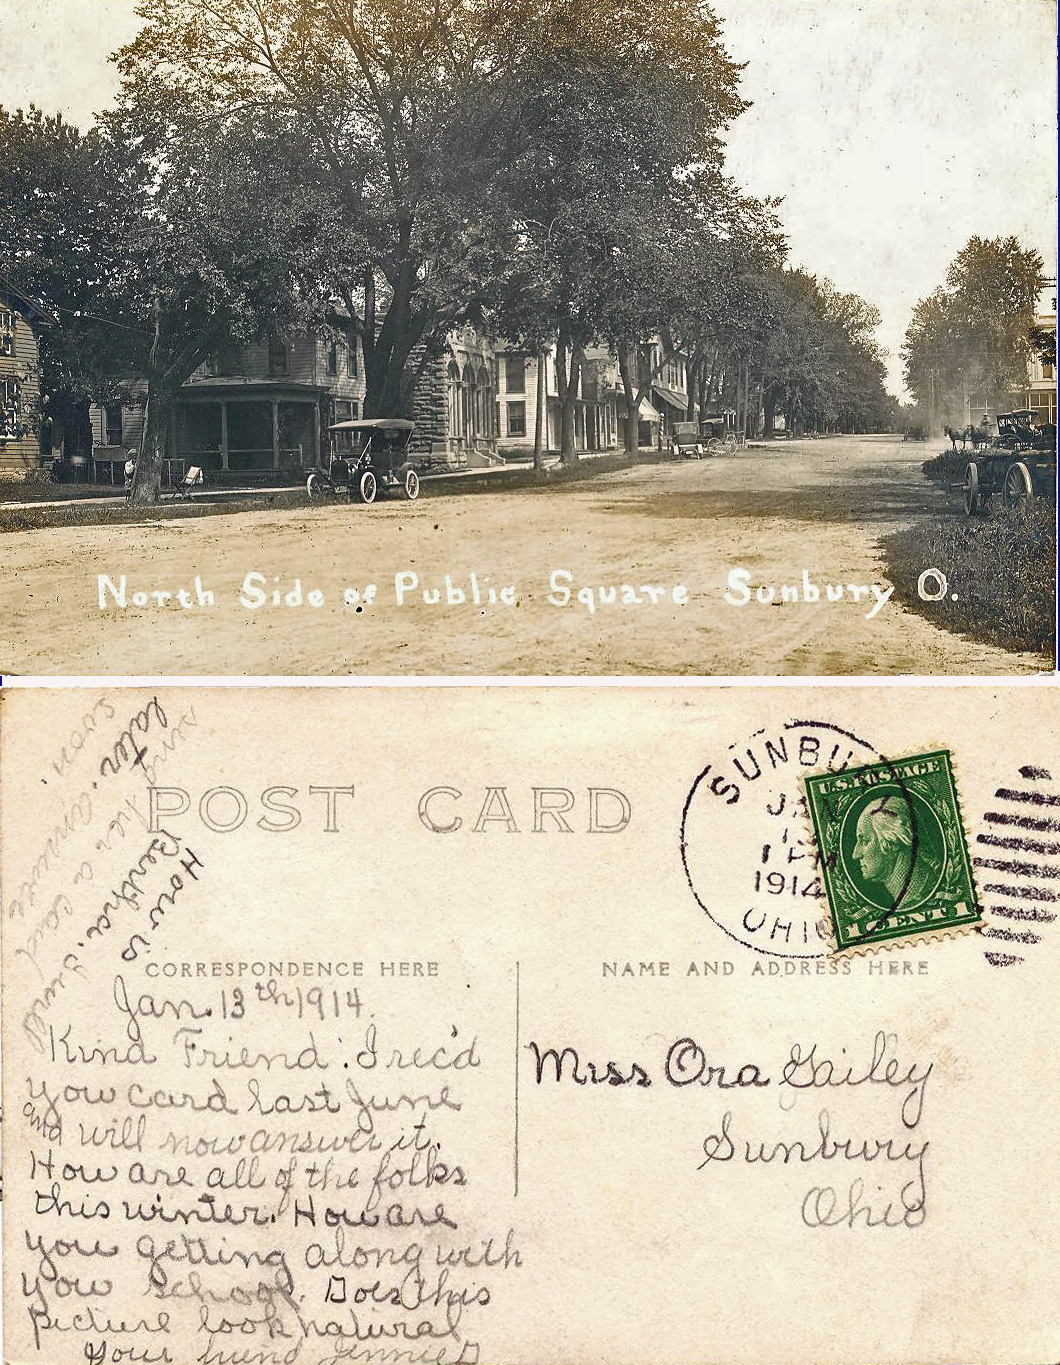 North Side of Public Square Sunbury O.
POST CARD
SUNBU
JAN
1 PM
1914
OHIO
U.S. POSTAGE
1 CENT 1
CORRESPONDENCE HERE
NAME AND ADDRESS HERE
Jan. 13th 1914.
Kind Friend: I rec'd
your card last June
and will now answer it.
How are all of the folks
this winter. How are
you getting along with
your school. Does this
picture look natural
Your friend Jennie D
How is
Bertha. I will
send her a card
later. Answer
soon.
Miss Ora Gailey
Sunbury
Ohio